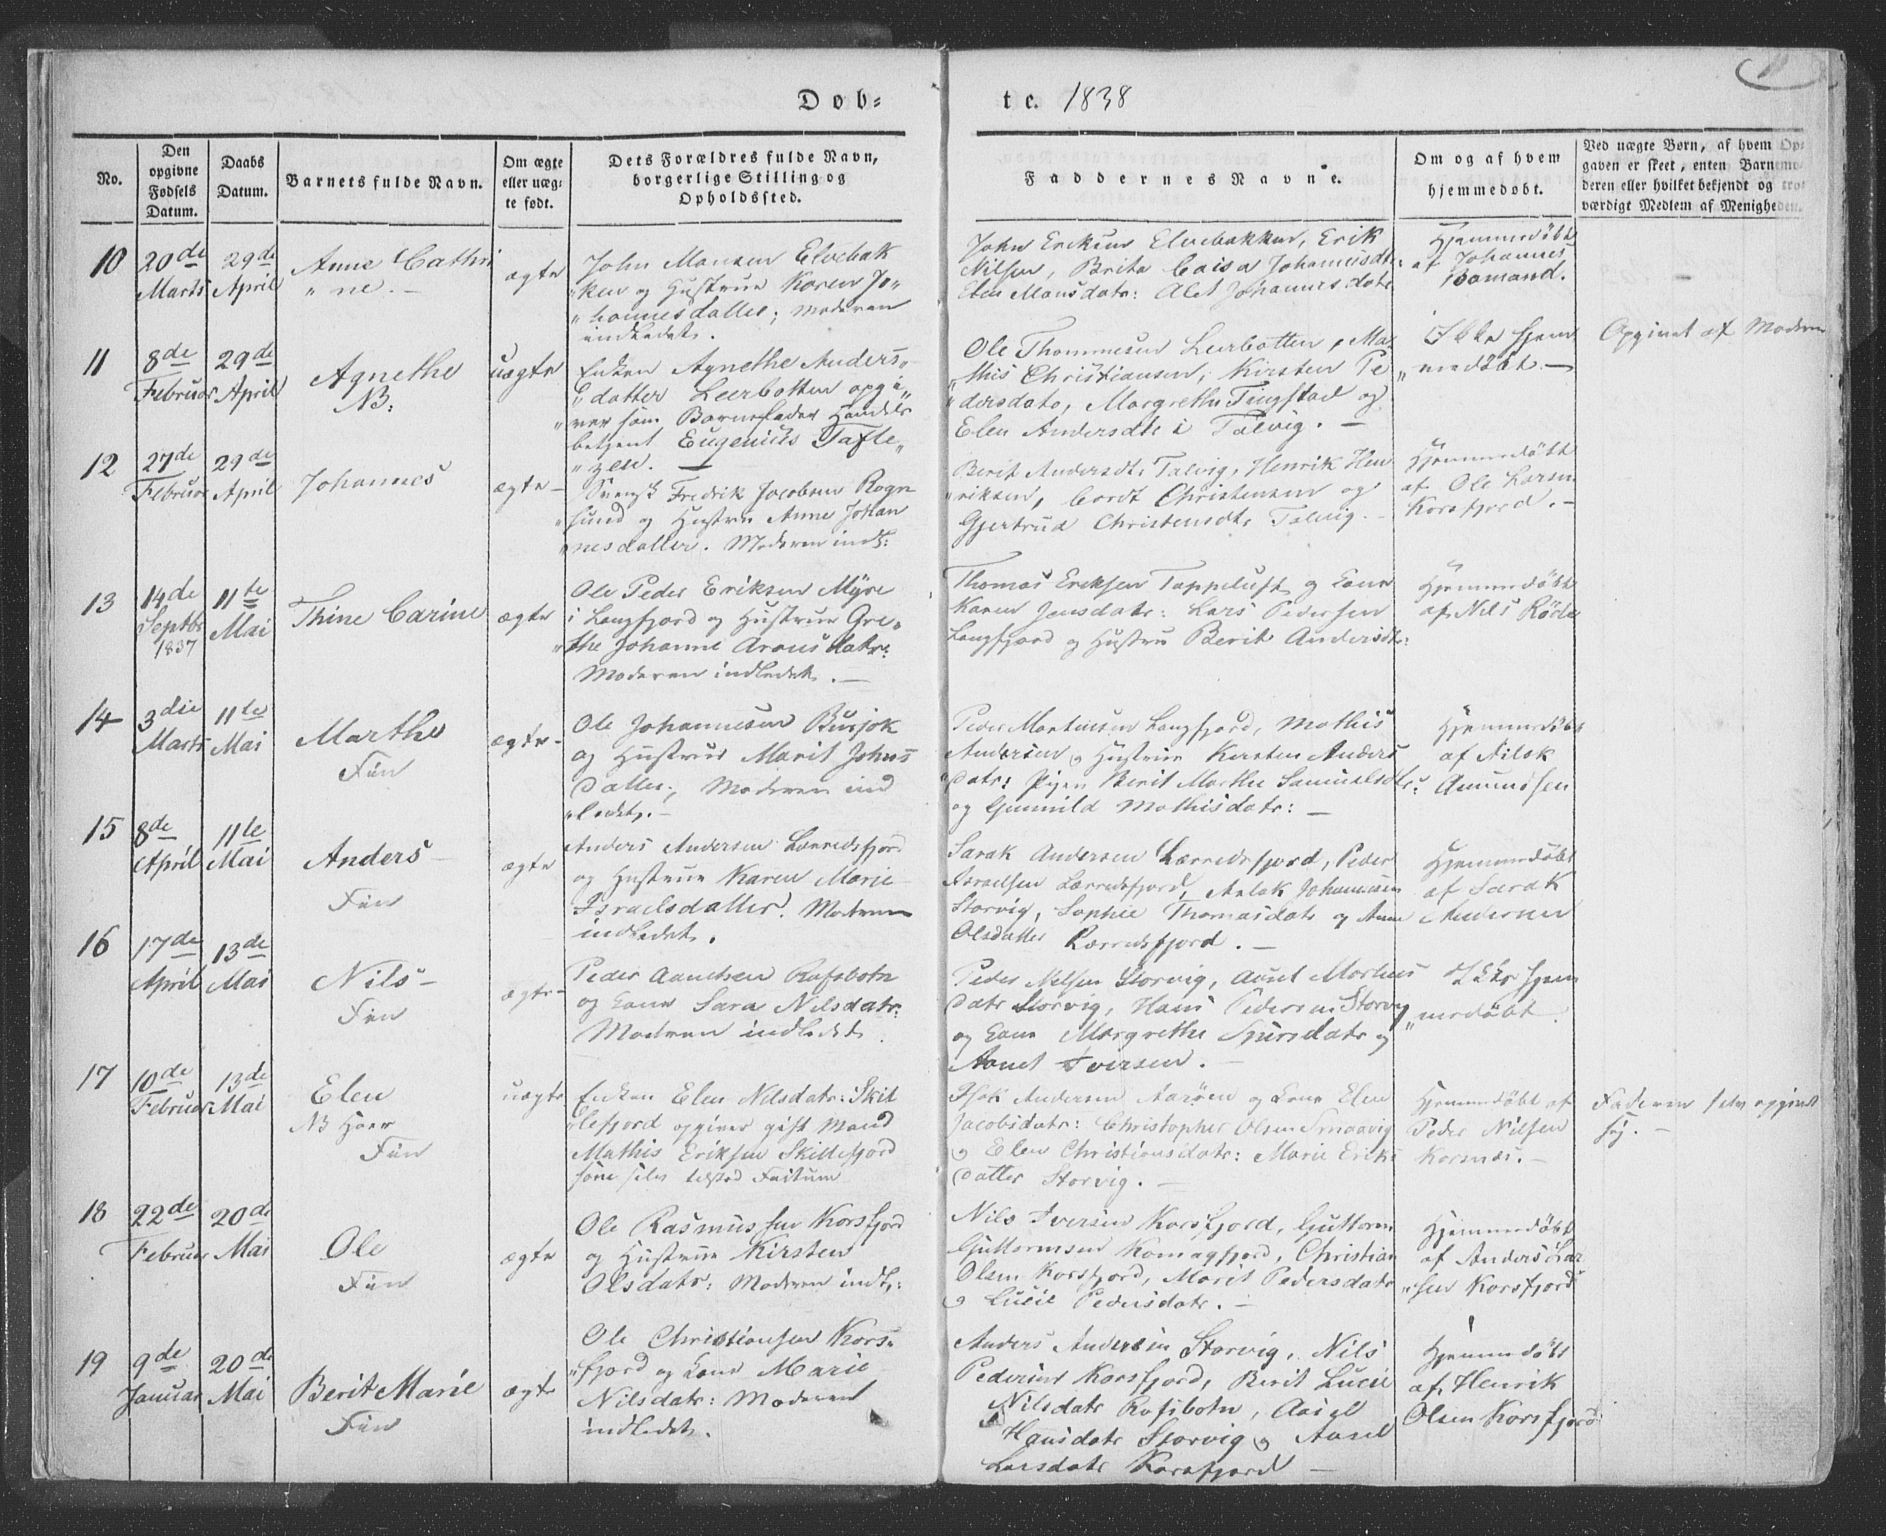 Døb-
te. 1838
No.
Den opgivne Fødsels Datum.
Daabs Datum.
Barnets fulde Navn.
Om ægte eller uægte født.
Dets Forældres fulde Navn, borgerlige Stilling og Opholdssted.
Faddernes Navne.
Om og af hvem hjemmedøbt.
Ved uægte Børn, af hvem Opgaven er skeet, enten Barnemoderen eller hvilket bekjendt og troværdigt Medlem af Menigheden.
10
20de Marts
29de April
Anne Cathri
"ne. -
ægte
John Monsen Elvebak
"ken og Hustrue Karen Jo"
"hannesdatter; Moderen
indledet.
John Ericksen Elvebakken, Erik
Nilsen, Brita Caisa Johannesdtr:
Elen Monsdatr: Alet Johannesdatr
Hjemmedøbt
af Johannes
Bomand.
11
8de Februar
29de April
Agnethe
NB:
uægte
Enken Agnethe Anders"
"datter Leerbotten opgi"
"ver som Barnefader Handels
betjent Eugenius Tafte"
"zen. -
Ole Thommesen Leerbotten, Ma"
"this Christiansen, Kirsten Pe
"dersdatr, Margrethe Tingstad og
Elen Andersdtr i Talvig. -
Ikke hjem
"medøbt -
Opgivet af Moderen
12
27de Februar
29de April
Johannes
ægte -
Svensk Fredrik Jacobsen Rogn
"sund og Hustru Anne Johan
"nesdatter. Moderen indl:
Berit Andersdtr Talvig, Henrik Hen
"riksen, Cordt Christensen og
Gjertrud Christensdtr Talvig. -
Hjemmedøbt
af Ole Larsen
Korsfjord. -
13
14de Septbr 1837
11te Mai
Thine Carine
ægte
Ole Peder Eriksen Myre
i Langfjord og Hustrue Gre"
"the Johanne Aronsdatr:
Moderen indledet. -
Thomas Ericksen Tappeluft og Kone
Karen Jensdatr: Lars Pedersen
Langfjord og Hustru Berit Andersdtr:
Hjemmedøbt
af Nils
14
3die Marts
11te Mai
Marthe
Fin
ægte -
Ole Johannesen Busjok
og Hustrue Marit Johns
datter, Moderen ind
"ledet. -
Peder Mortensen Langfjord, Mathis
Andersen og Hustrue Kirsten Anders
datr: Pigen Berit Marthe Samuelsdtr:
og Gunnild Mathisdatr: -
Hjemmedøbt
af Aslak
Amundsen
15
8de April
11te Mai
Anders -
Fin
ægte
Anders Andersen Lærredsfjord
og Hustrue Karen Marie
Israelsdatter. Moderen
indledet.
Sarak Andersen Lærredsfjord, Peder
Israelsen Lærredsfjord, Aslak Johannesen
Storvig, Sophie Thomasdatr og Anne
Olsdatter Lærredsfjord. -
Hjemmedøbt
af Sarak
Andersen
16
17de April
13de Mai
Nils -
Fin
ægte -
Peder Aanetsen Rafsbotn
og Kone Sara Nilsdatr:
Moderen indledet.
Peder Nilsen Storvig, Aasel Mortens
datr Storvig, Hans Pedersen Storvig
og Kone Margrethe Sjursdatr og
Aanet Iversen. -
Ikke hjem
"medøbt.
17
10de Februar
13de Mai
Elen
NB Hoer
Fin
uægte
Enken Elen Nilsdatr: Skil
"lefjord opgiver gift Mand
Mathis Eriksen Skillefjord
som selv tilstod Factum
Isak Andersen Aarøen og Kone Elen
Jacobsdatr: Christopher Olsen Smaavig
og Elen Christiansdatr: Marie Eriks
datter Storvig. -
Hjemmedøbt af
Peder Nilsen
Korsnæs. -
Faderen selv opgivet
sig. -
18
22de Februar
20de Mai
Ole
Fin
ægte
Ole Rasmussen Korsfjord
og Hustrue Kirsten
Olsdatr: Moderen indl:
Nils Iversen Korsfjord, Guttorm
Guttormsen Komagfjord, Christian
Olsen Korsfjord, Marit Pedersdatr
og Lucie Pedersdatr. -
Hjemmedøbt
af Anders Lar
"sen Korsfjord
19
9de Januar
20de Mai
Berit Marie
Fin
ægte
Ole Christiansen Kors"
"fjord og Kone Marie
Nilsdatr: Moderen
indledet.
Anders Andersen Storvig, Nils
Pedersen Korsfjord, Berit Lucie
Nilsdatr Rafsbotn, Aasel
Hansdatr Storvig og Aasel
Larsdatr Korsfjord -
Hjemmedøbt
af Henrik
Olsen Korsfjord